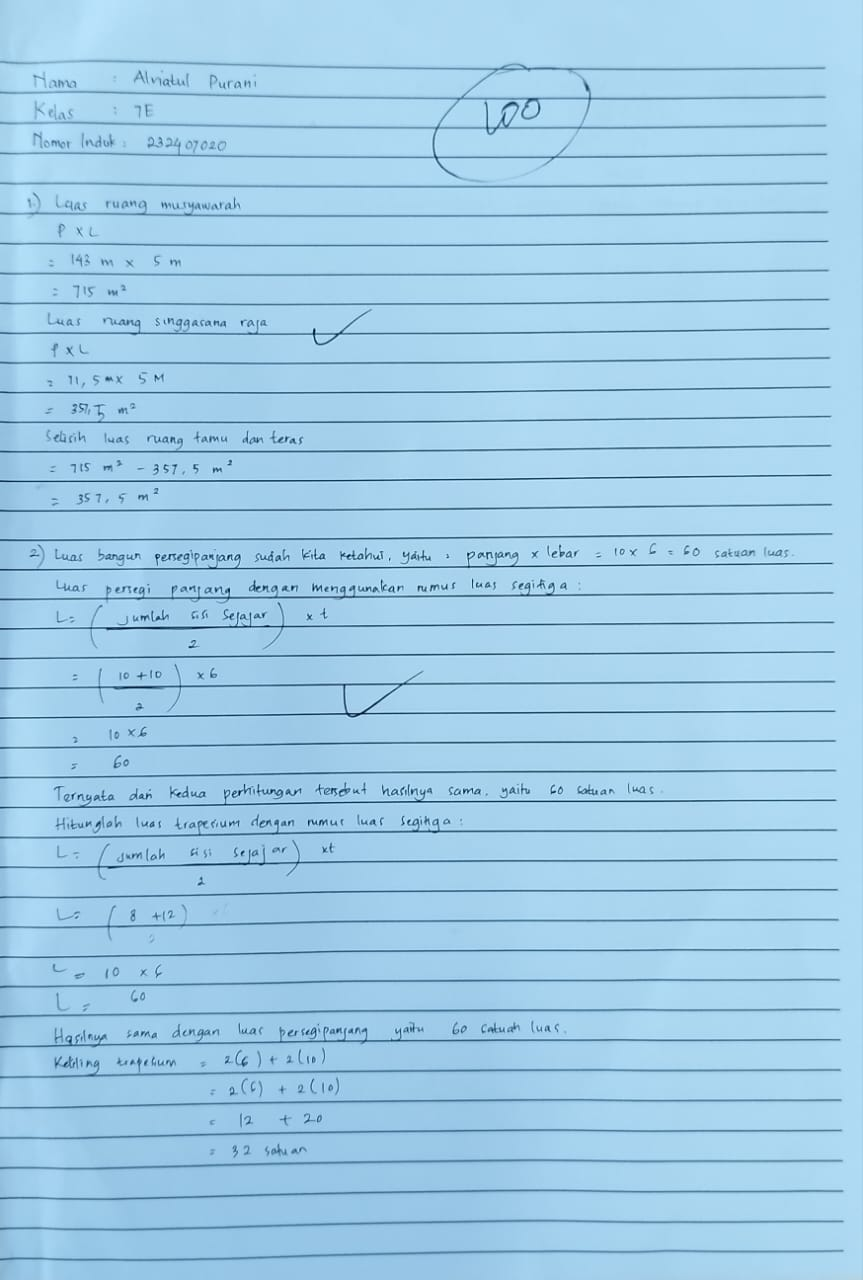 Nama : Alviatul Purani
Kelas : 7E
Nomor Induk : 232407020
100
1.) Luas ruang musyawarah
P x L
= 143 m x 5 m
= 715 m²
Luas ruang singgasana raja
P x L
= 71,5 m x 5 M
= 357,5 m²
Selisih luas ruang tamu dan teras
= 715 m² - 357,5 m²
= 357,5 m²
2) Luas bangun persegipanjang sudah kita ketahui, yaitu = panjang x lebar = 10 x 6 = 60 satuan luas.
Luas persegi panjang dengan menggunakan rumus luas segitiga :
L = (jumlah sisi sejajar / 2) x t
= (10 + 10 / 2) x 6
= 10 x 6
= 60
Ternyata dari kedua perhitungan tersebut hasilnya sama, yaitu 60 satuan luas.
Hitunglah luas trapesium dengan rumus luas segitiga :
L = (jumlah sisi sejajar / 2) x t
L = (8 + 12 / 2)
L = 10 x 6
L = 60
Hasilnya sama dengan luas persegipanjang yaitu 60 satuan luas.
Keliling trapesium = 2(6) + 2(10)
= 2(6) + 2(10)
= 12 + 20
= 32 satuan